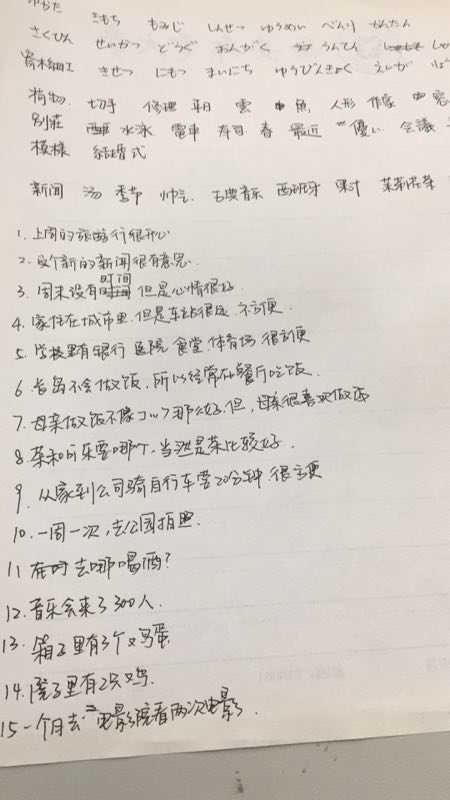 ゆかた きもち もみじ しんせつ ゆうめい べんり かんたん
さくひん せいかつ どうぐ おんがく うんてん
寄木細工 きせつ にもつ まいにち ゆうびんきょく えいが
荷物 切手 修理 雲 魚 人形 作家
別荘 水泳 電車 寿司 春 最近 優い 会議
模様 結婚式
新闻 汤 季节 帅气 古典音乐 西班牙 果汁 茉莉花茶
1. 上周的旅游行很开心
2. 这个新的新闻很有意思
3. 周末没有时间 但是心情很好
4. 家住在城市里.但是车站很远 不方便.
5. 学校里有银行 医院 食堂.体育场 很方便
6. 长岛不会做饭,所以经常在餐厅吃饭.
7. 母亲做饭不像 那么好.但,母亲很喜欢做饭
8. 茶和可乐要哪个.当然是茶比较好.
9. 从家到公司骑自行车要20分钟 很方便
10. 一周一次,去公园拍照.
11 在 去哪喝酒?
12. 音乐会来了300人.
13. 箱子里有3个鸡蛋
14. 院子里有2只鸡.
15 一个月去电影院看两次电影.